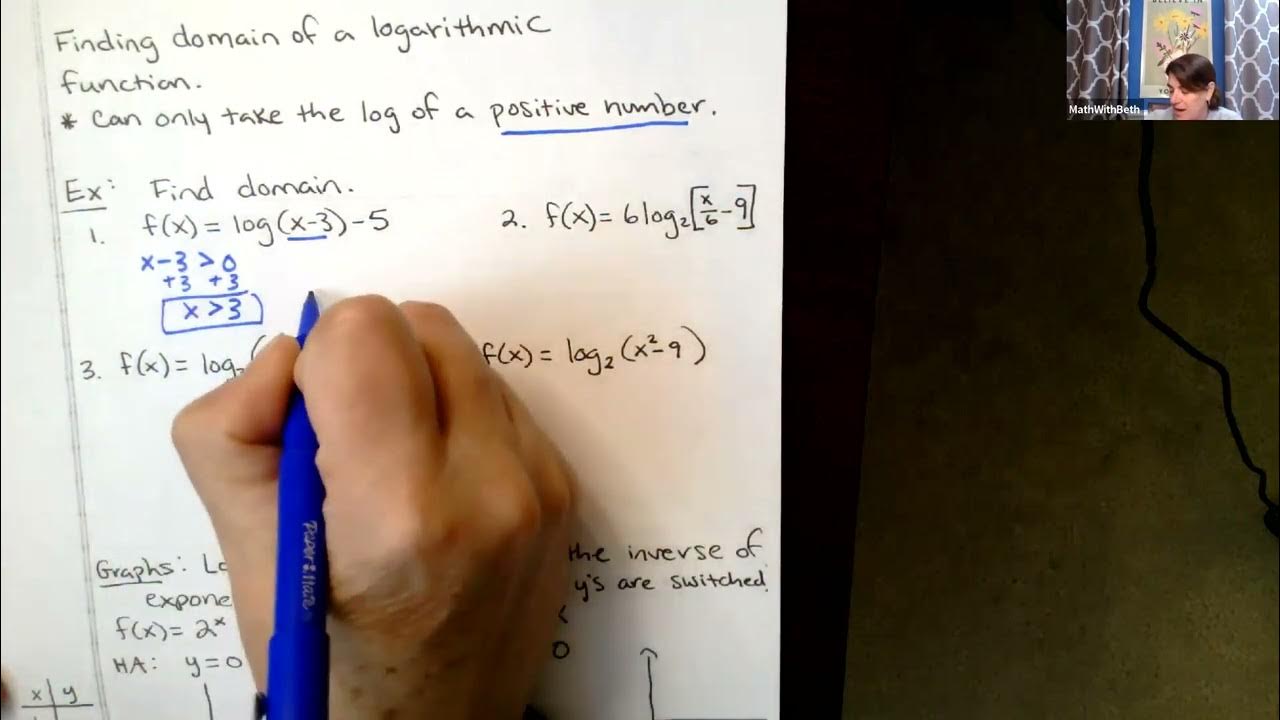 Finding domain of a logarithmic
function.
* Can only take the log of a positive number.
Ex: Find domain.
1. f(x) = log(x-3)-5
x-3 > 0
+3 +3
x > 3
2. f(x) = 6log₂[x/6 - 9]
3. f(x) = log₂(
f(x) = log₂(x²-9)
Graphs:
the inverse of
y's are switched.
f(x) = 2ˣ
HA: y=0
0
x y
MathWithBeth
BELIEVE IN
Paper:Mate